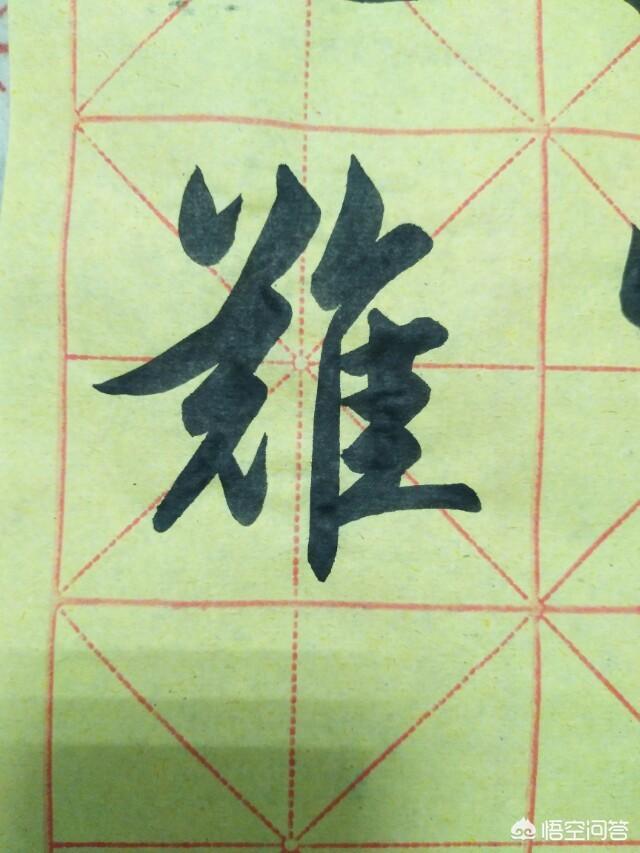 難
悟空问答